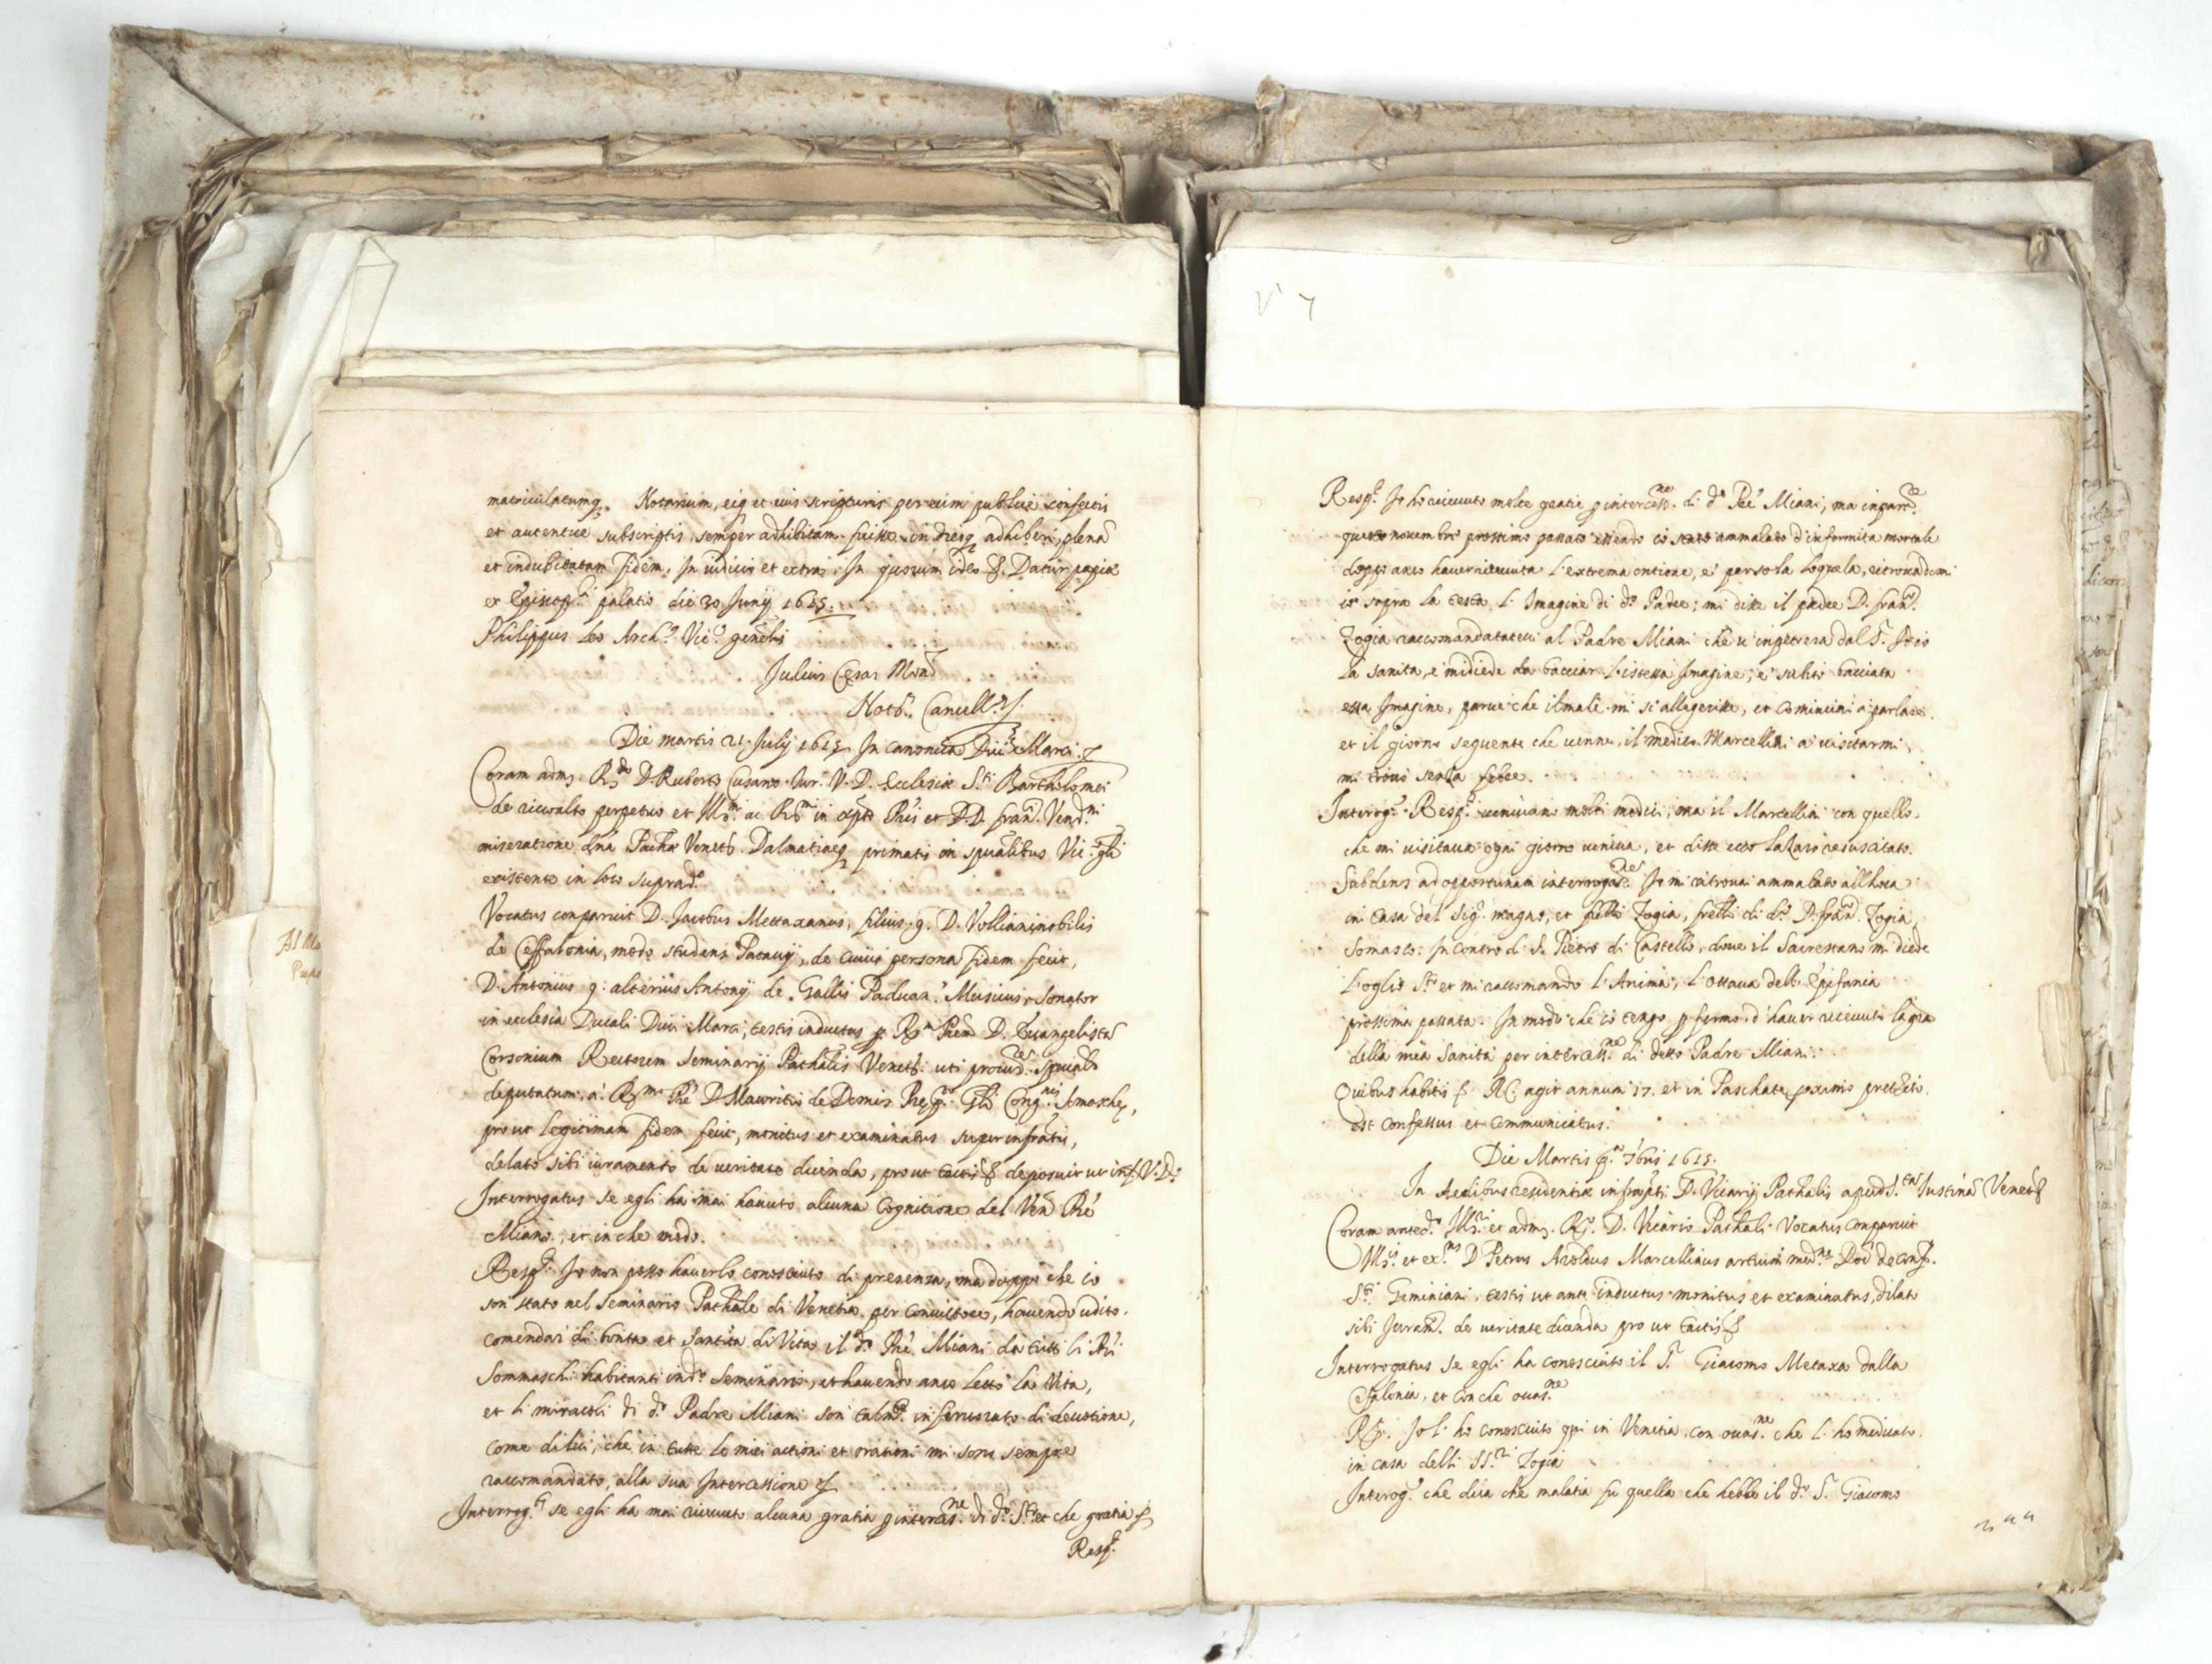 matriculatumq. Notarium, eiq et eius scripturis per eum publice confectis
et autentice subscriptis, semper adhibitam fuisse in diesq adhiberi, plena
et indubitatam fidem, In iudicio et extra; In quorum Datum papiæ
ex palatio die 30 Junij 1615.
Philippus Leo Arch.s Vic.s gen̄alis
Julius Cesar
Not.s Cancell.s
Die martis 21 July 1615 In canonica Diui Marci
Coram adm. R.do D. Ruberto Cusano Iur. V. D. Ecclesiæ S.ti Bartholomei
de riuoalto perpetuo et Ill.mi ac R.mi in xp̄to P̄ris et D. D. Fran. Vend.mi
miseratione d̄na P̄acha Venet. Dalmatiæq primatis in sp̄ualibus Vic. gl̄i
existente in loco suprad.o
Vocatus conparuit D. Jacobus Mettaxanus, filius q. D. nobilis
de Ceffalonia, modo studens Patauij, de cuius persona fidem fecit,
D. Antonius q. alterius Antonij de Gallis Paduan. Musicus, sonator
in ecclesia Ducali Diui Marci, testis inductus p. R. P̄rem D. Euangelista
Corsonium Rectorem Seminarij Pat̄halis Venet. uti spetial
deputatum à R.mo P̄re D. Mauritio de Domis Gl̄i Cong.nis Somaschę,
pro ut legitimam fidem fecit, monitus et examinatus super infratis,
delato sibi iuramento de ueritate dicenda, pro ut tactis deposuit ut inf. V. D.
Interrogatus se egli ha mai hauuto alcuna cognitione del Ven. P̄re
Miano, et in che modo.
Resp.t Io non posso hauerlo conosciuto di presenza, ma doppo che io
son stato nel Seminario Pat̄hale di Venetia per conuittore, hauendo udito
comendar di bontà et santità di Vita il d.o P̄re Miani da tutti li P̄ri
Sommaschi habitanti in d.o Seminario, et hauendo anco letto la Vita,
et li miracoli di d.o Padre Miani son talm.te inferuorato di deuotione,
come di lui, che in tutte le mie attioni et orationi mi sono sempre
raccomandato, alla sua Intercessione
Interrog.s se egli ha mai riceuuto alcuna gratia p interces.ne di d.o S.re et che gratia
Resp.t
V 7
Resp.t Io ho riceuuto molte gratie p interces.ne di d.o P̄re Miani, ma in par.re
questo nouembre prossimo passato essendo io stato ammalato d'infermita mortale
doppo anco hauer riceuuta l'estrema ontione, e persa la loquela, ritrouadomi
io sopra la testa l'Imagine di d.o Padre; mi disse il padre D. fran.o
Zogia raccomandateui al Padre Miani che u'inpetrera dal S. Iddio
la sanita, e mi diede da bacciar l'istessa Imagine; e subito bacciata
essa Imagine, parue che il male mi si allegerisse, et cominciai à parlare.
et il giorno seguente che uenne il medico Marcellini a uisitarmi,
mi trouò senza febre.
Interog.s Resp.t ueniuano molti medici, ma il Marcellini con quello
che mi uisitaua ogni giorno ueniua, et disse ecco Lazaro resuscitato.
Subdens ad opportunam interrogat.nem Io mi ritrouai ammalato all'hora
in casa del Sig.r magno, et f̄relli Zogia, fretti di d.o D. fran. Zogia
Somasco: In contro di S. Pietro di Castello, doue il Sacrestano mi diede
l'oglio S.to et mi raccomandò l'Anima, l'ottaua dell'Epifania
prossima passata. In modo che io tengo p fermo d'hauer riceuuta la gr̄a
della mia Sanità per interces.ne di detto Padre Miani.
Quibus habitis f. R. agit annum 17. et in Paschate proximo pret̄ito
est confessus et communicatus.
Die Martis p.a 7bris 1615.
In Aedibus residentiæ infrascpti D. Vicarij Pat̄halis apud S.tam Iustinā Venet
Coram anted.o Ill. et adm. R. D. Vicario Pat̄hali Vocatus conparuit
Ill. et ex.mus D. Petrus Marcellinus artium med.ne Doc de conf.
S.ti Geminiani, testis ut ante inductus monitus et examinatus, dilato
sibi Juram. de ueritate dicenda pro ut tactis
Interrogatus se egli ha conosciuto il S.r Giacomo Metaxa dalla
Cefalonia, et con che ocas.ne
R. Io l'ho conosciuto qui in Venetia con ocas.ne che l'ho medicato
in casa delli SS.ri Zogia
Interog.s che dica che malatia fu quella che hebbe il d.o S.r Giacomo